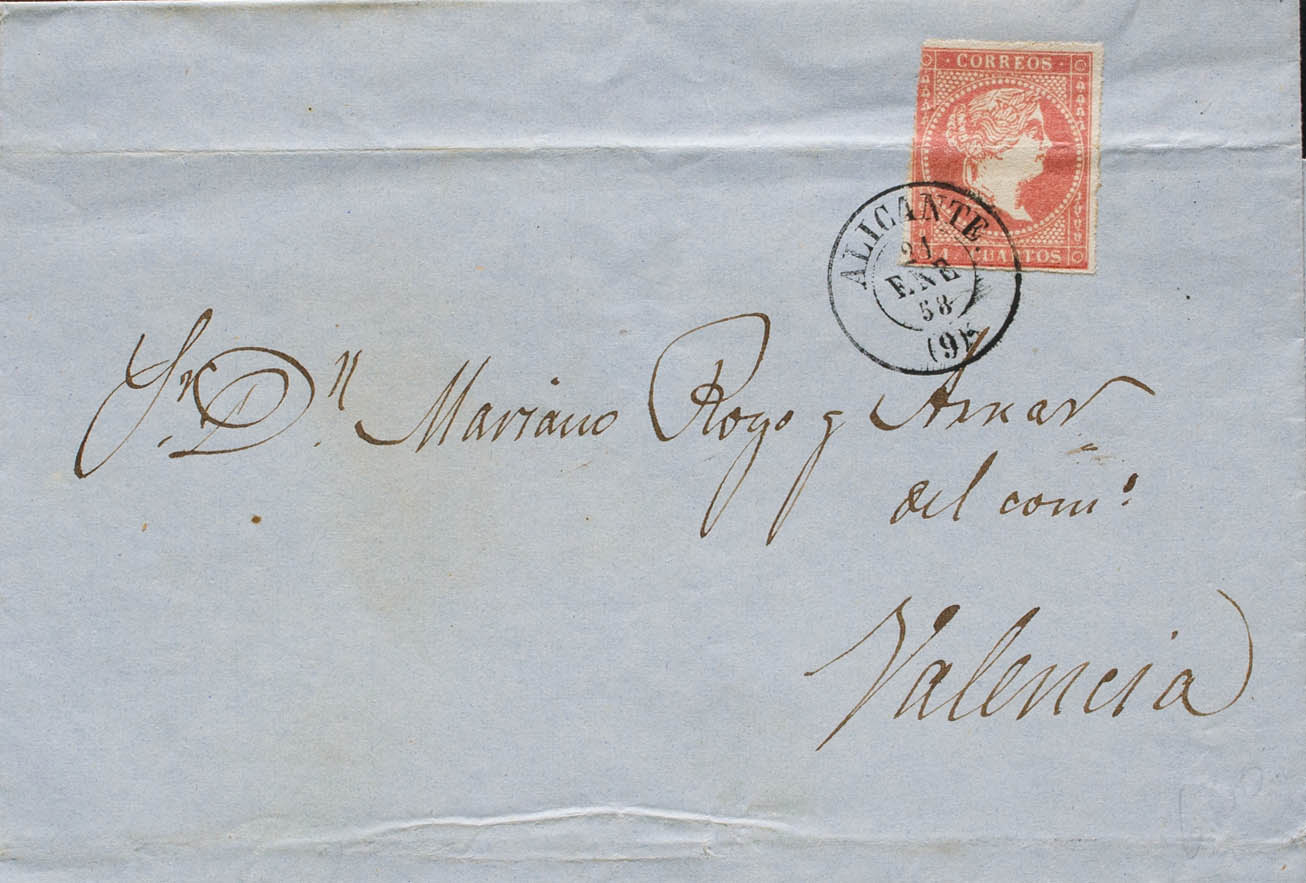 CORREOS
4 CUARTOS
ALICANTE.
21
ENE
58
(9)
Sr. Dn. Mariano Royo y Aznar
del com.o
Valencia